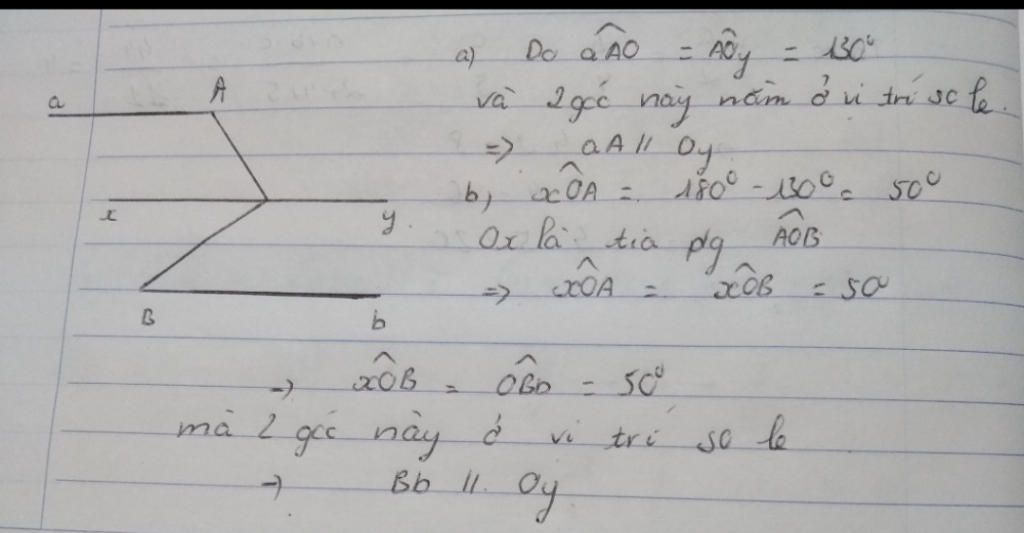 a
A
x
y.
B
b
a) Do aÂO = AÔy = 130°
và 2 góc này nằm ở vị trí so le.
=> aA // Oy
b, xÔA = 180° - 130° = 50°
Ox là tia pg AÔB
=> xÔA = xÔB = 50°
=> xÔB = OB̂b = 50°
mà 2 góc này ở vị trí so le
=> Bb // Oy